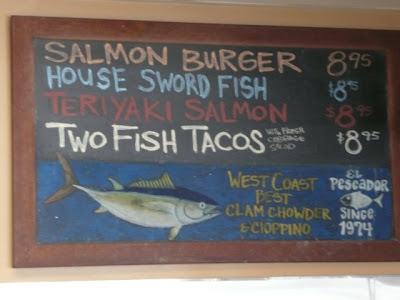 SALMON BURGER 8.95
HOUSE SWORD FISH $8.45
TERIYAKI SALMON $8.95
TWO FISH TACOS WITH FRESH CABBAGE SALAD $8.95
WEST COAST
BEST
CLAM CHOWDER
& CIOPPINO
EL
PESCADOR
SINCE
1974